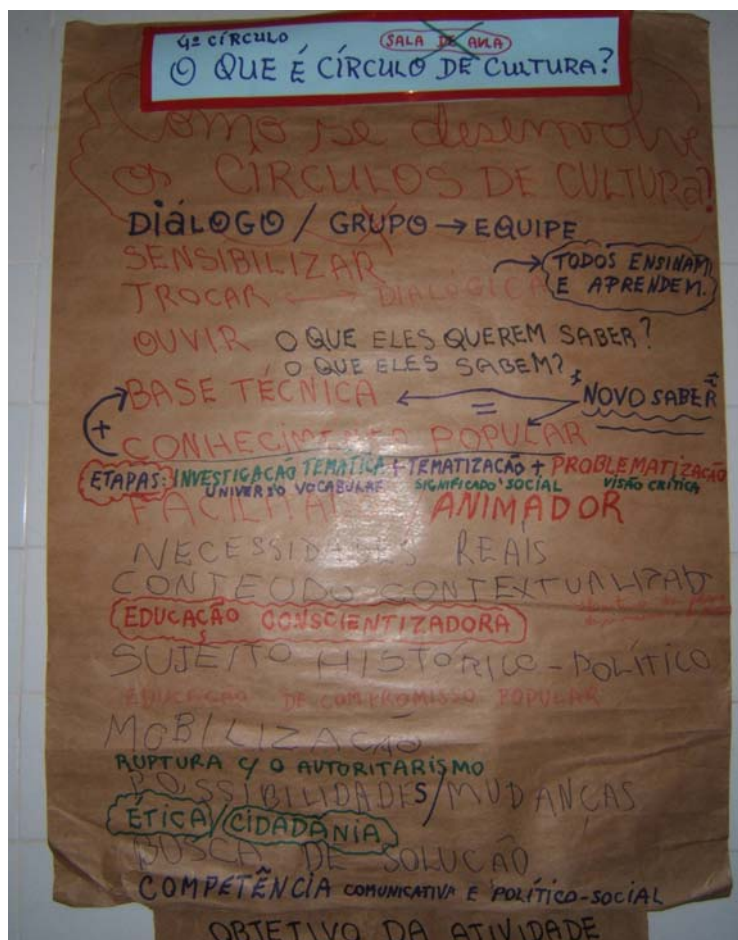 4º CÍRCULO SALA DE AULA
O QUE É CÍRCULO DE CULTURA?
Como se desenvolve
os CÍRCULOS DE CULTURA?
DIÁLOGO / GRUPO → EQUIPE
SENSIBILIZAR
TODOS ENSINAM
E APRENDEM.
TROCAR ← → DIALÓGICA
OUVIR O QUE ELES QUEREM SABER?
O QUE ELES SABEM?
BASE TÉCNICA
NOVO SABER
+ =
CONHECIMENTO POPULAR
ETAPAS: INVESTIGAÇÃO TEMÁTICA + TEMATIZAÇÃO + PROBLEMATIZAÇÃO
UNIVERSO VOCABULAR SIGNIFICADO SOCIAL VISÃO CRÍTICA
ANIMADOR
NECESSIDADES REAIS
CONTEÚDO CONTEXTUALIZAD
EDUCAÇÃO CONSCIENTIZADORA
SUJEITO HISTÓRICO-POLÍTICO
EDUCAÇÃO DE COMPROMISSO POPULAR
MOBILIZAÇÃO
RUPTURA C/ O AUTORITARISMO
POSSIBILIDADES/MUDANÇAS
ÉTICA/CIDADANIA
BUSCA DE SOLUCÃO
COMPETÊNCIA COMUNICATIVA E POLÍTICO-SOCIAL
OBJETIVO DA ATIVIDADE